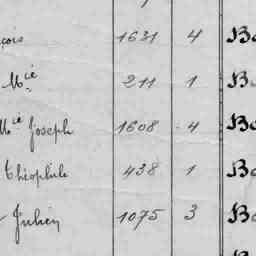 çois 1631 4 Bo
Mié 211 1 B
Mié Joseph 1608 4 Bo
Théophile 438 1 Bo
Julien 1075 3 Bo